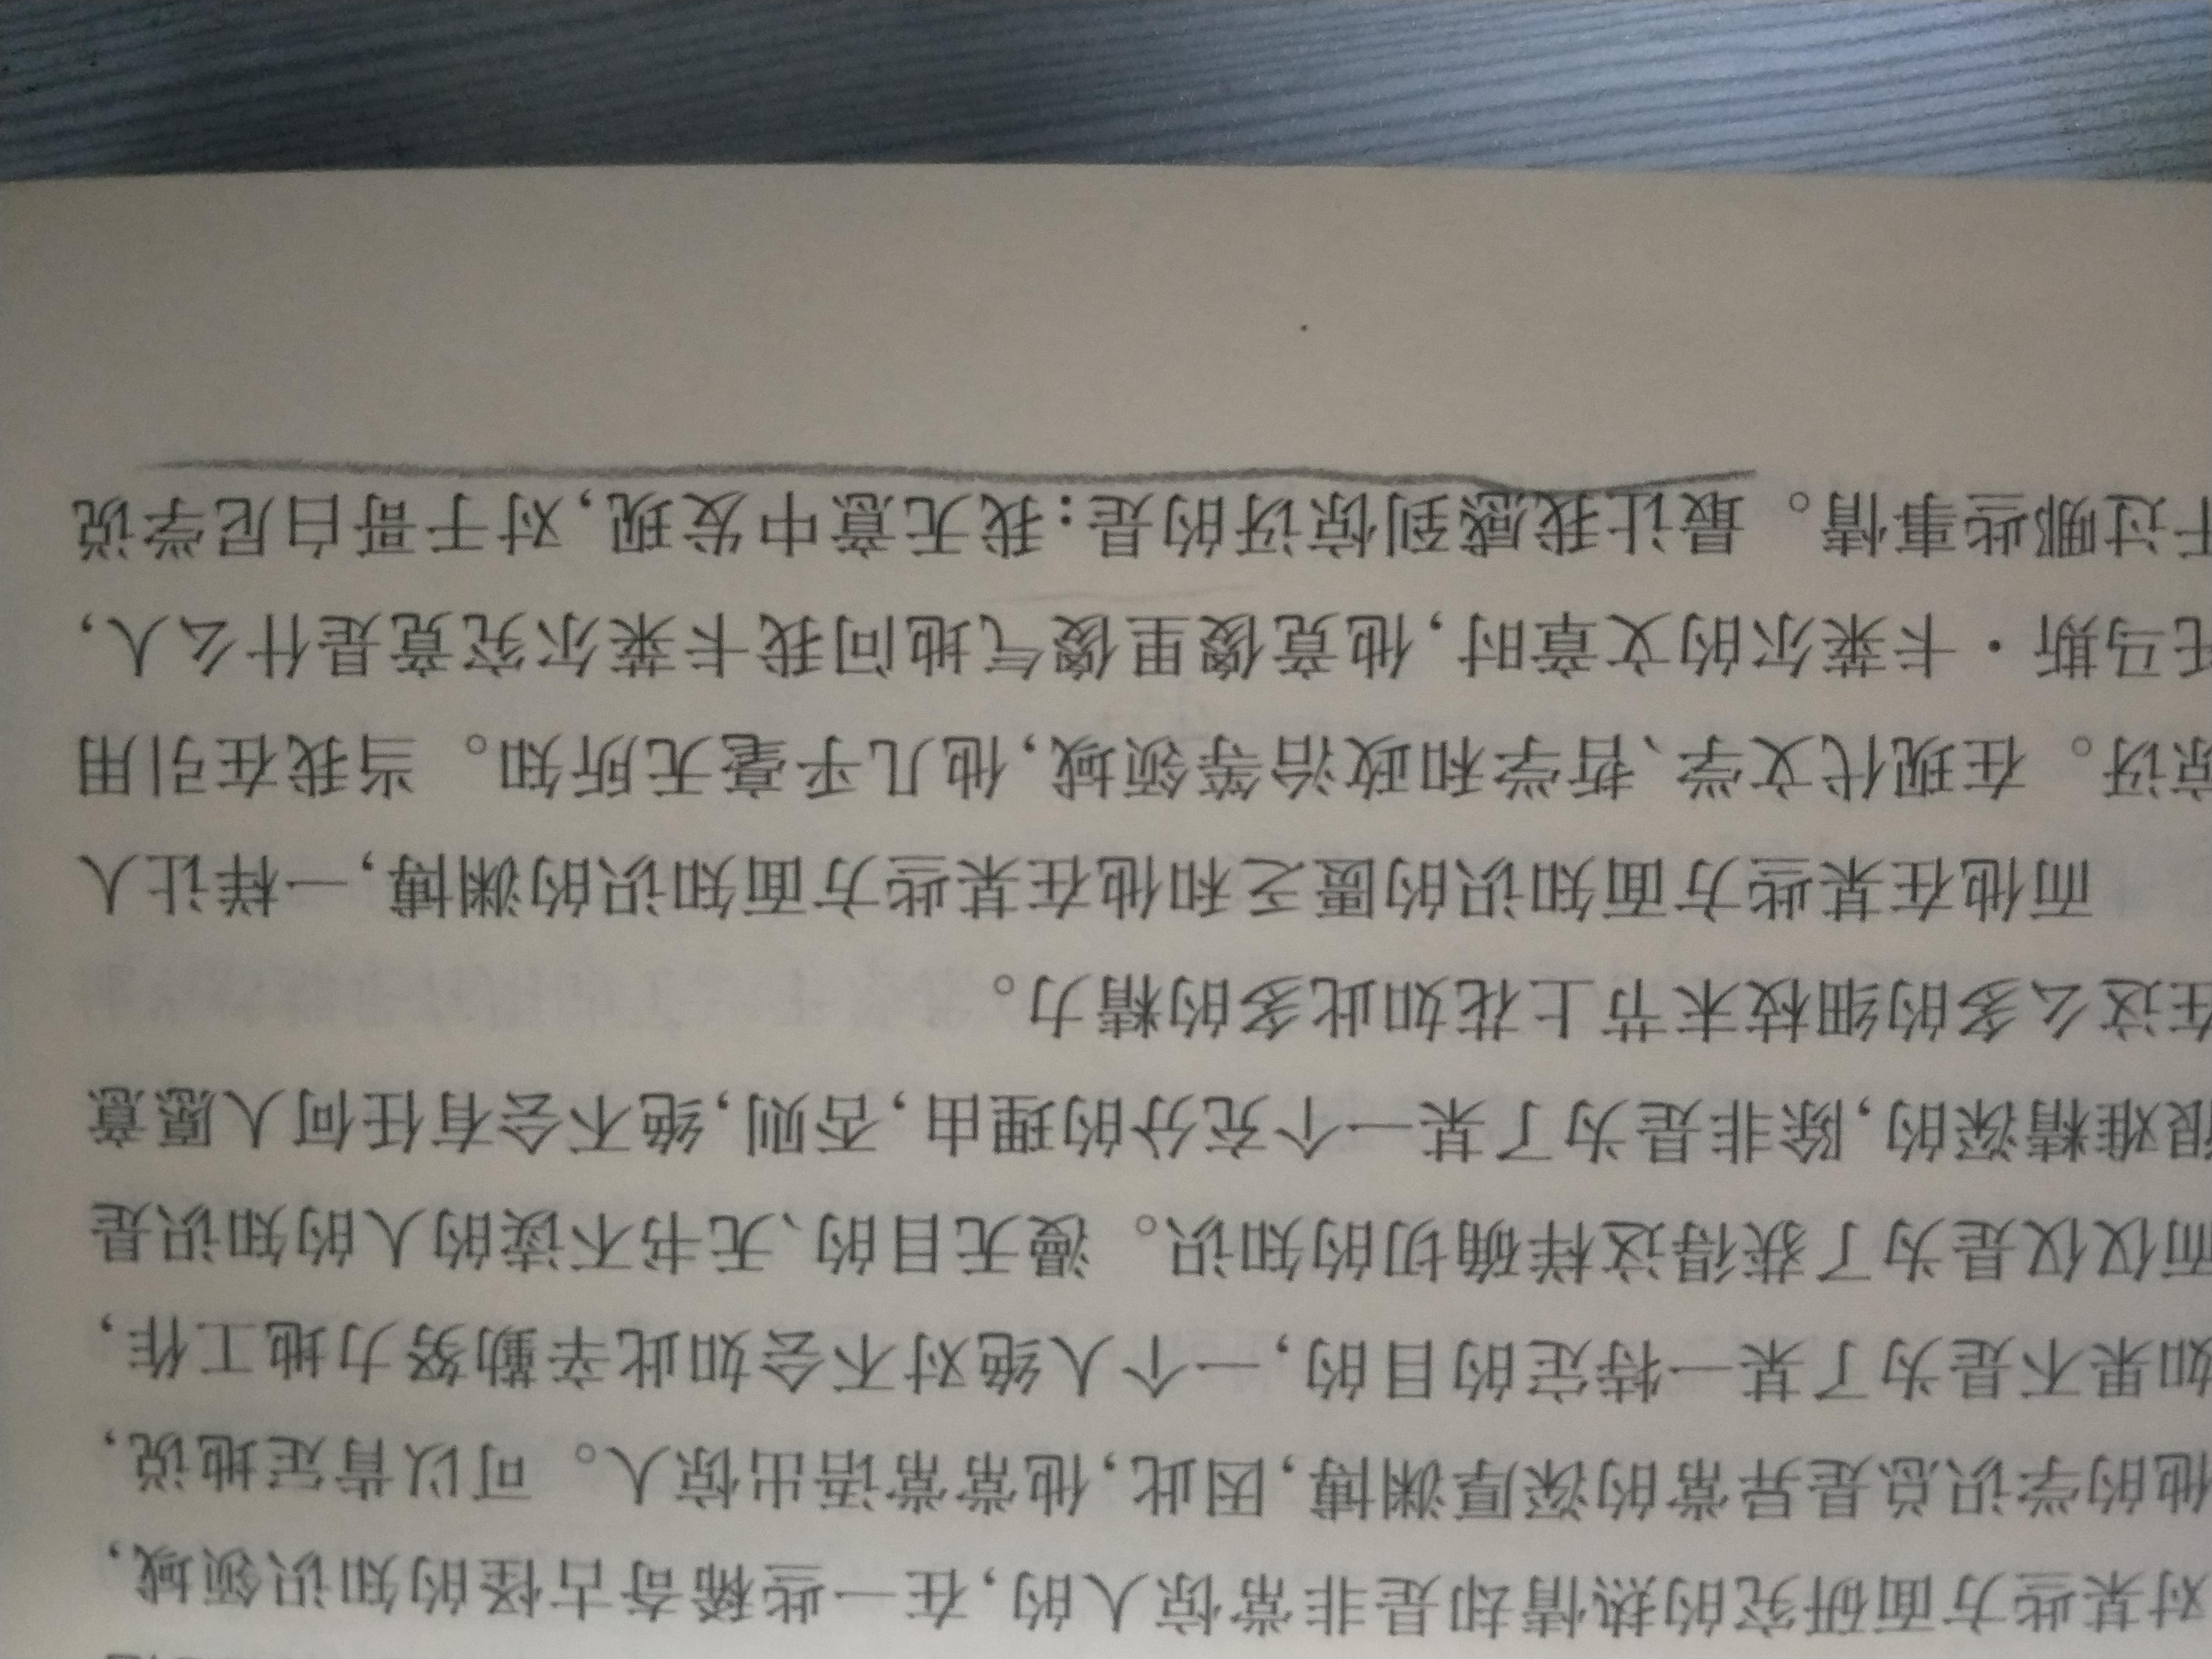 对某些方面研究的热情却是非常惊人的,在一些稀奇古怪的知识领域,
他的学识总是异常的深厚渊博,因此,他常常语出惊人。可以肯定地说,
如果不是为了某一特定的目的,一个人绝对不会如此辛勤努力地工作,
而仅仅是为了获得这样确切的知识。漫无目的、无书不读的人的知识是
很难精深的,除非是为了某一个充分的理由,否则,绝不会有任何人愿意
在这么多的细枝末节上花如此多的精力。
而他在某些方面知识的匮乏和他在某些方面知识的渊博,一样让人
惊讶。在现代文学、哲学和政治等领域,他几乎毫无所知。当我在引用
托马斯·卡莱尔的文章时,他竟傻里傻气地问我卡莱尔究竟是什么人,
干过哪些事情。最让我感到惊讶的是:我无意中发现,对于哥白尼学说